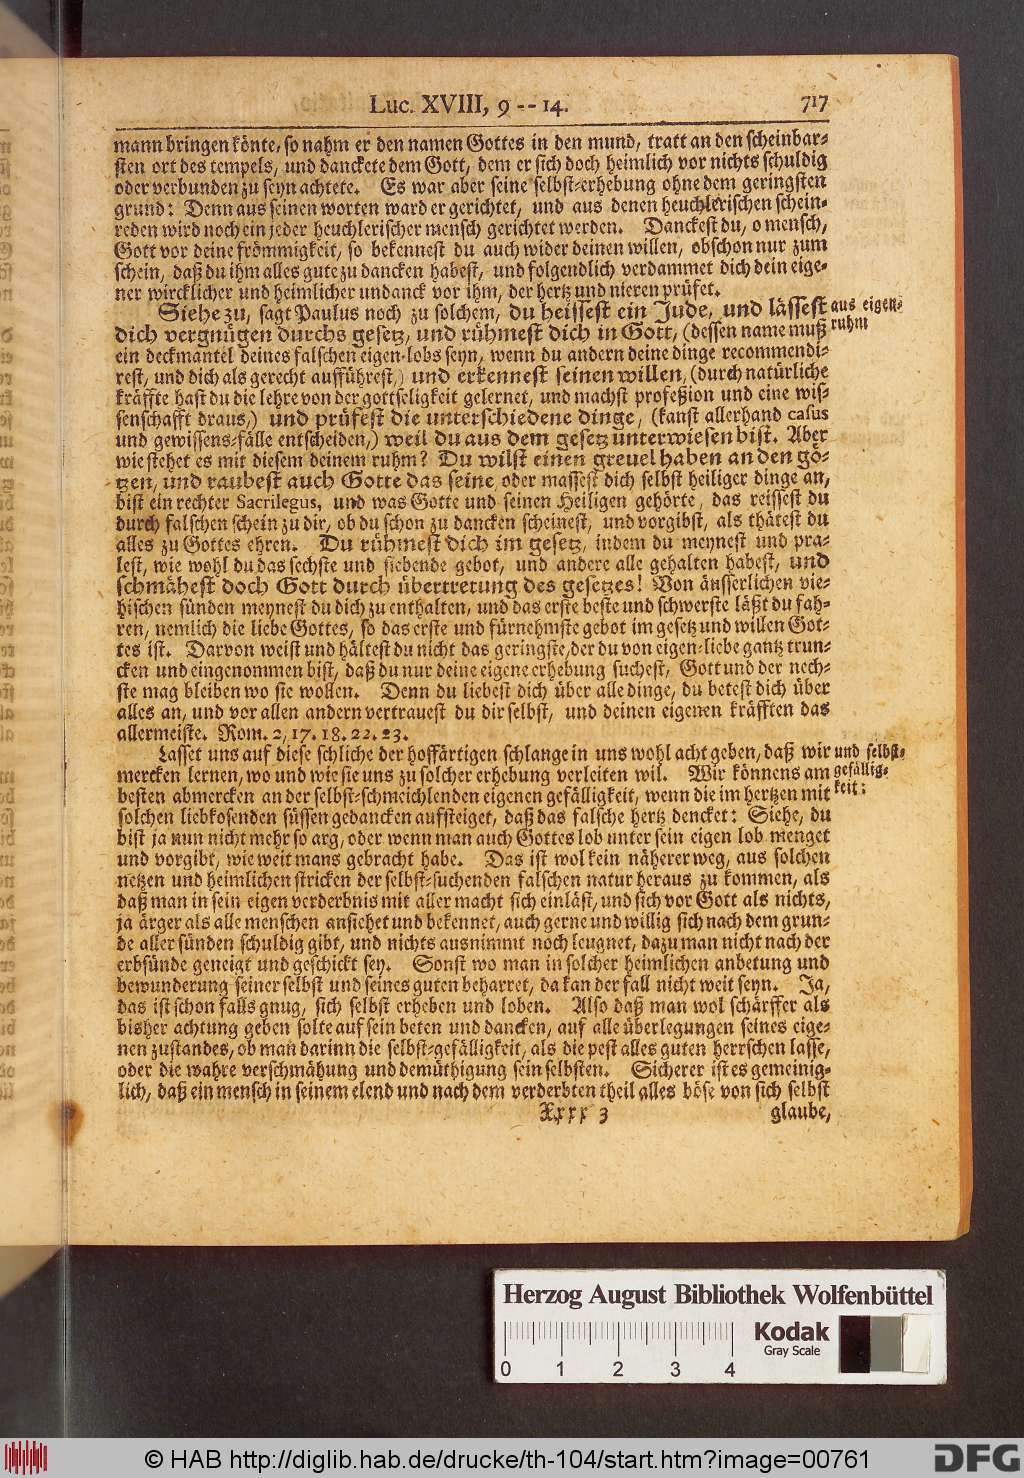 Luc. XVIII, 9 -- 14. 717
mann bringen könte, so nahm er den namen Gottes in den mund, tratt an den scheinbar-
sten ort des tempels, und danckete dem Gott, dem er sich doch heimlich vor nichts schuldig
oder verbunden zu seyn achtete. Es war aber seine selbst-erhebung ohne dem geringsten
grund: Denn aus seinen worten ward er gerichtet, und aus denen heuchlerischen schein-
reden wird noch ein jeder heuchlerischer mensch gerichtet werden. Danckest du, o mensch,
Gott vor deine frömmigkeit, so bekennest du auch wider deinen willen, obschon nur zum
schein, daß du ihm alles gute zu dancken habest, und folgendlich verdammet dich dein eige-
ner wircklicher und heimlicher undanck vor ihm, der hertz und nieren prüfet.
Siehe zu, sagt Paulus noch zu solchem, du heissest ein Jude, und lässest aus eigen-
dich vergnügen durchs gesetz, und rühmest dich in Gott, (dessen name muß ruhm
ein deckmantel deines falschen eigen-lobs seyn, wenn du andern deine dinge recommendi-
rest, und dich als gerecht aufführest,) und erkennest seinen willen, (durch natürliche
kräffte hast du die lehre von der gottseligkeit gelernet, und machst profeßion und eine wis-
senschafft draus,) und prüfest die unterschiedene dinge, (kanst allerhand casus
und gewissens-fälle entscheiden,) weil du aus dem gesetz unterwiesen bist. Aber
wie stehet es mit diesem deinem ruhm? Du wilst einen greuel haben an den gö-
tzen, und raubest auch Gotte das seine, oder massest dich selbst heiliger dinge an,
bist ein rechter Sacrilegus, und was Gotte und seinen Heiligen gehörte, das reissest du
durch falschen schein zu dir, ob du schon zu dancken scheinest, und vorgibst, als thätest du
alles zu Gottes ehren. Du rühmest dich im gesetz, indem du meynest und pra-
lest, wie wohl du das sechste und siebende gebot, und andere alle gehalten habest, und
schmähest doch Gott durch übertretung des gesetzes! Von äusserlichen vie-
hischen sünden meynest du dich zu enthalten, und das erste beste und schwerste läßt du fah-
ren, nemlich die liebe Gottes, so das erste und fürnehmste gebot im gesetz und willen Got-
tes ist. Darvon weist und hältest du nicht das geringste, der du von eigen-liebe gantz trun-
cken und eingenommen bist, daß du nur deine eigene erhebung suchest, Gott und der nech-
ste mag bleiben wo sie wollen. Denn du liebest dich über alle dinge, du betest dich über
alles an, und vor allen andern vertrauest du dir selbst, und deinen eigenen kräfften das
allermeiste. Rom. 2, 17. 18. 22. 23.
Lasset uns auf diese schliche der hoffärtigen schlange in uns wohl acht geben, daß wir und selbst-
mercken lernen, wo und wie sie uns zu solcher erhebung verleiten wil. Wir könnens am gefällig-
besten abmercken an der selbst-schmeichlenden eigenen gefälligkeit, wenn die im hertzen mit keit:
solchen liebkosenden süssen gedancken aufsteiget, daß das falsche hertz dencket: Siehe, du
bist ja nun nicht mehr so arg, oder wenn man auch Gottes lob unter sein eigen lob menget
und vorgibt, wie weit mans gebracht habe. Das ist wol kein näherer weg, aus solchen
netzen und heimlichen stricken der selbst-suchenden falschen natur heraus zu kommen, als
daß man in sein eigen verderbnis mit aller macht sich einläst, und sich vor Gott als nichts,
ja ärger als alle menschen ansiehet und bekennet, auch gerne und willig sich nach dem grun-
de aller sünden schuldig gibt, und nichts ausnimmt noch leugnet, dazu man nicht nach der
erbsünde geneigt und geschickt sey. Sonst wo man in solcher heimlichen anbetung und
bewunderung seiner selbst und seines guten beharret, da kan der fall nicht weit seyn. Ja,
das ist schon falls gnug, sich selbst erheben und loben. Also daß man wol schärffer als
bisher achtung geben solte auf sein beten und dancken, auf alle überlegungen seines eige-
nen zustandes, ob man darinn die selbst-gefälligkeit, als die pest alles guten herrschen lasse,
oder die wahre verschmähung und demüthigung sein selbsten. Sicherer ist es gemeinig-
lich, daß ein mensch in seinem elend und nach dem verderbten theil alles böse von sich selbst
Xxxx 3 glaube,
Herzog August Bibliothek Wolfenbüttel
Kodak
Gray Scale
0 1 2 3 4
© HAB http://diglib.hab.de/drucke/th-104/start.htm?image=00761
DFG